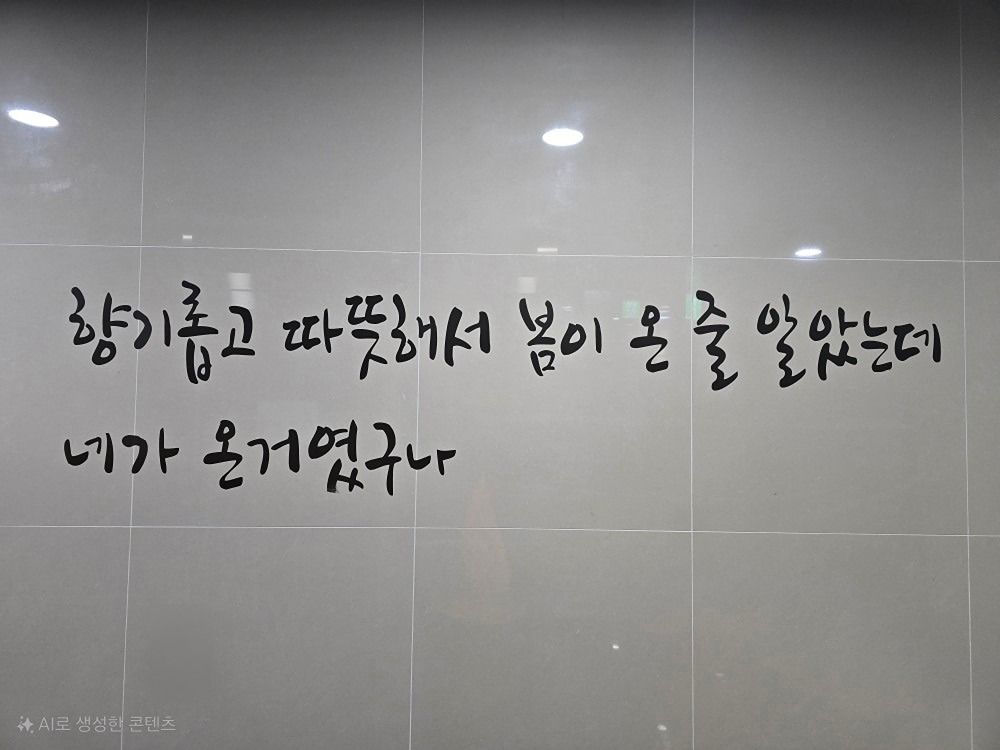 향기롭고 따뜻해서 봄이 온 줄 알았는데
네가 온거였구나
AI로 생성한 콘텐츠